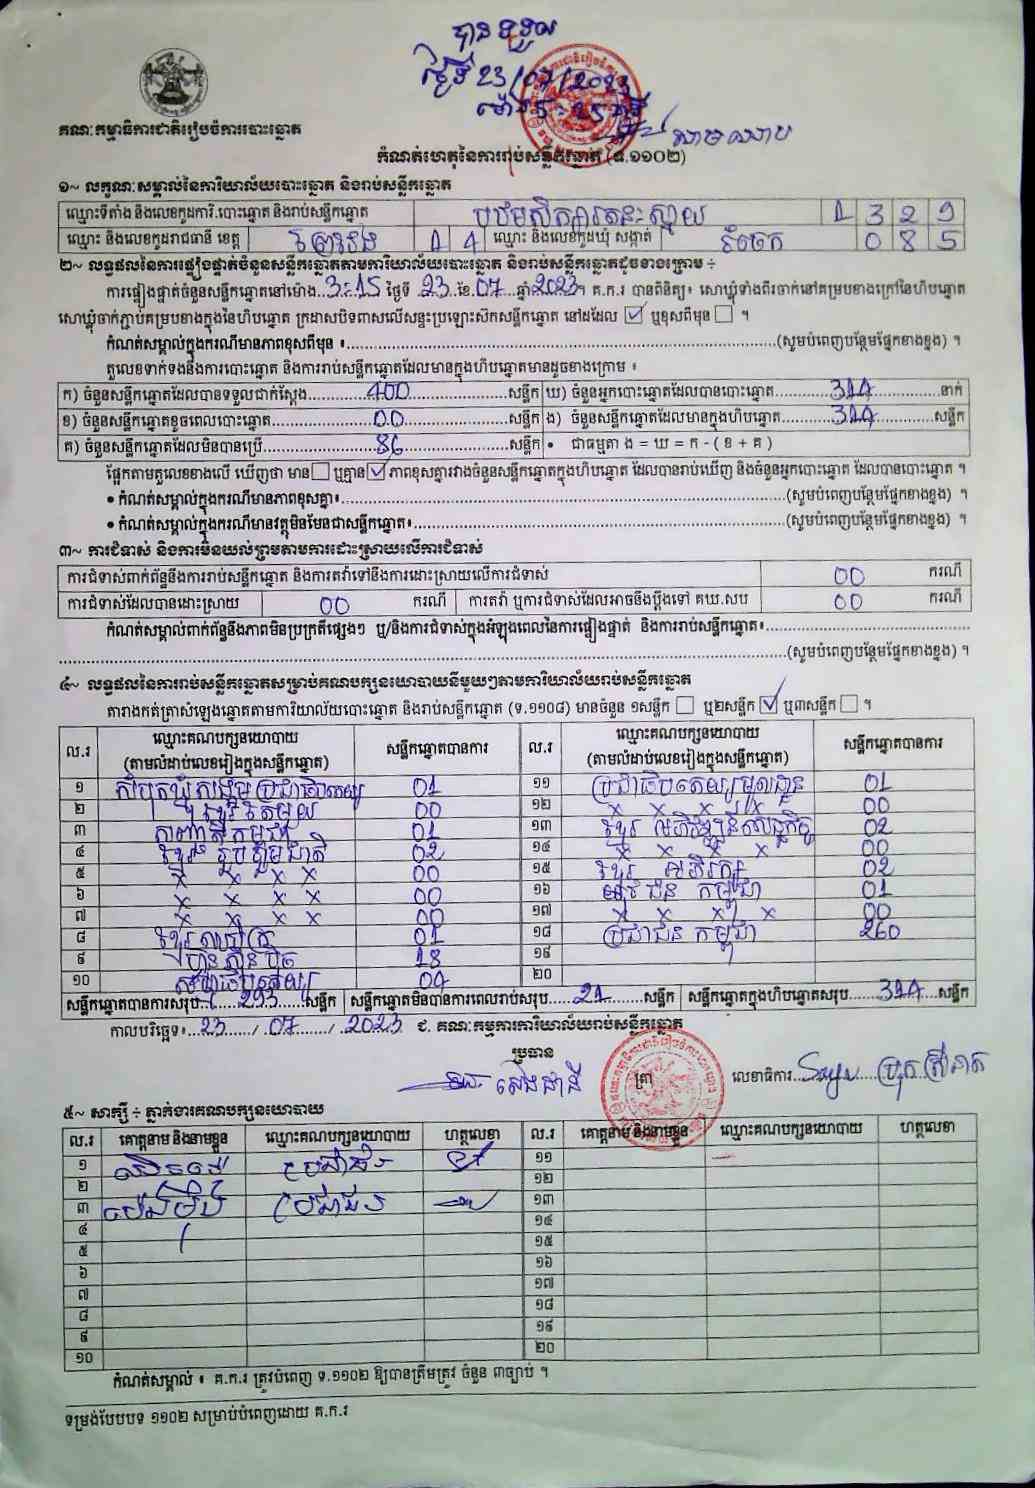 បានទទួល
ថ្ងៃទី 23/07/2023
ម៉ោង 5:25
គណៈកម្មាធិការជាតិរៀបចំការបោះឆ្នោត
កំណត់ហេតុនៃការរាប់សន្លឹកឆ្នោត (ទ.១១០២)
១~ លក្ខណៈសម្គាល់នៃការិយាល័យបោះឆ្នោត និងរាប់សន្លឹកឆ្នោត
ឈ្មោះទីតាំង និងលេខកូដការិ.បោះឆ្នោត និងរាប់សន្លឹកឆ្នោត បឋមសិក្សារតនៈស្វាយ 1 3 2 9
ឈ្មោះ និងលេខកូដរាជធានី ខេត្ត ព្រៃវែង 1 4 ឈ្មោះ និងលេខកូដឃុំ សង្កាត់ 0 8 5
២~ លទ្ធផលនៃការផ្ទៀងផ្ទាត់ចំនួនសន្លឹកឆ្នោតតាមការិយាល័យបោះឆ្នោត និងរាប់សន្លឹកឆ្នោតដូចខាងក្រោម ÷
ការផ្ទៀងផ្ទាត់ចំនួនសន្លឹកឆ្នោតនៅម៉ោង..3:15 ថ្ងៃទី 23 ខែ.07...ឆ្នាំ2023។ គ.ក.រ បានពិនិត្យ៖ សោឃ្លុំទាំងពីរចាក់នៅគម្របខាងក្រៅនៃហិបឆ្នោត
សោឃ្លុំចាក់ភ្ជាប់គម្របខាងក្នុងនៃហិបឆ្នោត ក្រដាសបិទពាសលើសន្ទះប្រឡោះស៊កសន្លឹកឆ្នោត នៅដដែល ☑ ឬខុសពីមុន ☐ ។
កំណត់សម្គាល់ក្នុងករណីមានភាពខុសពីមុន ៖...(សូមបំពេញបន្ថែមផ្នែកខាងខ្នង) ។
តួលេខទាក់ទងនឹងការបោះឆ្នោត និងការរាប់សន្លឹកឆ្នោតដែលមានក្នុងហិបឆ្នោតមានដូចខាងក្រោម ៖
ក) ចំនួនសន្លឹកឆ្នោតដែលបានទទួលជាក់ស្តែង...400...សន្លឹក ឃ) ចំនួនអ្នកបោះឆ្នោតដែលបានបោះឆ្នោត...314...នាក់
ខ) ចំនួនសន្លឹកឆ្នោតខូចពេលបោះឆ្នោត...00...សន្លឹក ង) ចំនួនសន្លឹកឆ្នោតដែលមានក្នុងហិបឆ្នោត...314...សន្លឹក
គ) ចំនួនសន្លឹកឆ្នោតដែលមិនបានប្រើ...86...សន្លឹក • ជាធម្មតា ង = ឃ = ក - ( ខ + គ )
ផ្អែកតាមតួលេខខាងលើ ឃើញថា មាន ☐ ឬគ្មាន ☑ ភាពខុសគ្នារវាងចំនួនសន្លឹកឆ្នោតក្នុងហិបឆ្នោត ដែលបានរាប់ឃើញ និងចំនួនអ្នកបោះឆ្នោត ដែលបានបោះឆ្នោត ។
• កំណត់សម្គាល់ក្នុងករណីមានភាពខុសគ្នា៖...(សូមបំពេញបន្ថែមផ្នែកខាងខ្នង) ។
• កំណត់សម្គាល់ក្នុងករណីមានវត្ថុមិនមែនជាសន្លឹកឆ្នោត៖...(សូមបំពេញបន្ថែមផ្នែកខាងខ្នង) ។
៣~ ការជំទាស់ និងការមិនយល់ព្រមតាមការដោះស្រាយលើការជំទាស់
ការជំទាស់ពាក់ព័ន្ធនឹងការរាប់សន្លឹកឆ្នោត និងការតវ៉ាទៅនឹងការដោះស្រាយលើការជំទាស់ 00 ករណី
ការជំទាស់ដែលបានដោះស្រាយ 00 ករណី ការតវ៉ា ឬការជំទាស់ដែលអាចនឹងប្តឹងទៅ គឃ.សប 00 ករណី
កំណត់សម្គាល់ពាក់ព័ន្ធនឹងភាពមិនប្រក្រតីផ្សេងៗ ឬ/និងការជំទាស់ក្នុងអំឡុងពេលនៃការផ្ទៀងផ្ទាត់ និងការរាប់សន្លឹកឆ្នោត៖...
...(សូមបំពេញបន្ថែមផ្នែកខាងខ្នង) ។
៤~ លទ្ធផលនៃការរាប់សន្លឹកឆ្នោតសម្រាប់គណបក្សនយោបាយនីមួយៗតាមការិយាល័យរាប់សន្លឹកឆ្នោត
តារាងកត់ត្រាសំឡេងឆ្នោតតាមការិយាល័យបោះឆ្នោត និងរាប់សន្លឹកឆ្នោត (ទ.១១០៨) មានចំនួន ១សន្លឹក ☐ ឬ២សន្លឹក ☑ ឬ៣សន្លឹក ☐ ។
ល.រ ឈ្មោះគណបក្សនយោបាយ (តាមលំដាប់លេខរៀងក្នុងសន្លឹកឆ្នោត) សន្លឹកឆ្នោតបានការ ល.រ ឈ្មោះគណបក្សនយោបាយ (តាមលំដាប់លេខរៀងក្នុងសន្លឹកឆ្នោត) សន្លឹកឆ្នោតបានការ
១ សំបុកឃ្មុំសង្គមប្រជាធិបតេយ្យ 01 ១១ ប្រជាធិបតេយ្យមូលដ្ឋាន 01
២ ខ្មែរតែមួយ 00 ១២ x x x x 00
៣ កម្ពុជា 01 ១៣ ខ្មែរ អភិវឌ្ឍន៍សេដ្ឋកិច្ច 02
៤ ខ្មែរ រួបរួមជាតិ 02 ១៤ x x x 00
៥ x x x x 00 ១៥ ខ្មែរ អភិរក្ស 02
៦ x x x x 00 ១៦ ជន កម្ពុជា 01
៧ x x x x 00 ១៧ x x x x 00
៨ ខ្មែរ 01 ១៨ ប្រជាជន កម្ពុជា 260
៩ ហ្វ៊ុនស៊ិនប៉ិច 18 ១៩
១០ 04 ២០
សន្លឹកឆ្នោតបានការសរុប...293...សន្លឹក សន្លឹកឆ្នោតមិនបានការពេលរាប់សរុប...21...សន្លឹក សន្លឹកឆ្នោតក្នុងហិបឆ្នោតសរុប...314...សន្លឹក
កាលបរិច្ឆេទ៖...23.../.07.../.2023 ជ. គណៈកម្មការការិយាល័យរាប់សន្លឹកឆ្នោត
ប្រធាន
ត្រា លេខាធិការ
៥~ សាក្សី ÷ ភ្នាក់ងារគណបក្សនយោបាយ
ល.រ គោត្តនាម និងនាមខ្លួន ឈ្មោះគណបក្សនយោបាយ ហត្ថលេខា ល.រ គោត្តនាម និងនាមខ្លួន ឈ្មោះគណបក្សនយោបាយ ហត្ថលេខា
១ ប្រជាជន ១១
២ ១២
៣ ប្រជាជន ១៣
៤ ១៤
៥ ១៥
៦ ១៦
៧ ១៧
៨ ១៨
៩ ១៩
១០ ២០
កំណត់សម្គាល់ ៖ គ.ក.រ ត្រូវបំពេញ ទ.១១០២ ឱ្យបានត្រឹមត្រូវ ចំនួន ៣ច្បាប់ ។
ទម្រង់បែបបទ ១១០២ សម្រាប់បំពេញដោយ គ.ក.រ